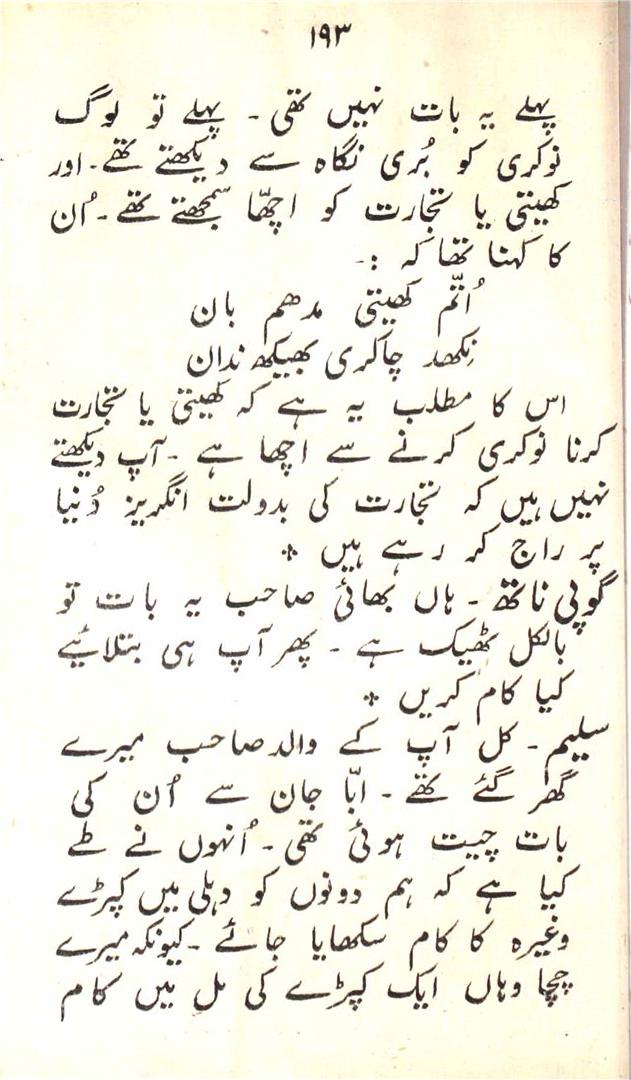 ۱۹۳
پہلے یہ بات نہیں تھی - پہلے تو لوگ
نوکری کو بُری نگاہ سے دیکھتے تھے - اور
کھیتی یا تجارت کو اچھّا سمجھتے تھے - اُن
کا کہنا تھا کہ :-
اُتّم کھیتی مدھم بان
نِکھد چاکری بھیکھ ندان
اس کا مطلب یہ ہے کہ کھیتی یا تجارت
کرنا نوکری کرنے سے اچھا ہے - آپ دیکھتے
نہیں ہیں کہ تجارت کی بدولت انگریز دُنیا
پر راج کر رہے ہیں *
گوپی ناتھ - ہاں بھائی صاحب یہ بات تو
بالکل ٹھیک ہے - پھر آپ ہی بتلائیے
کیا کام کریں *
سلیم - کل آپ کے والد صاحب میرے
گھر گئے تھے - ابّا جان سے اُن کی
بات چیت ہوئی تھی - اُنہوں نے طے
کیا ہے کہ ہم دونوں کو دہلی میں کپڑے
وغیرہ کا کام سکھایا جائے - کیونکہ میرے
چچا وہاں ایک کپڑے کی مل میں کام